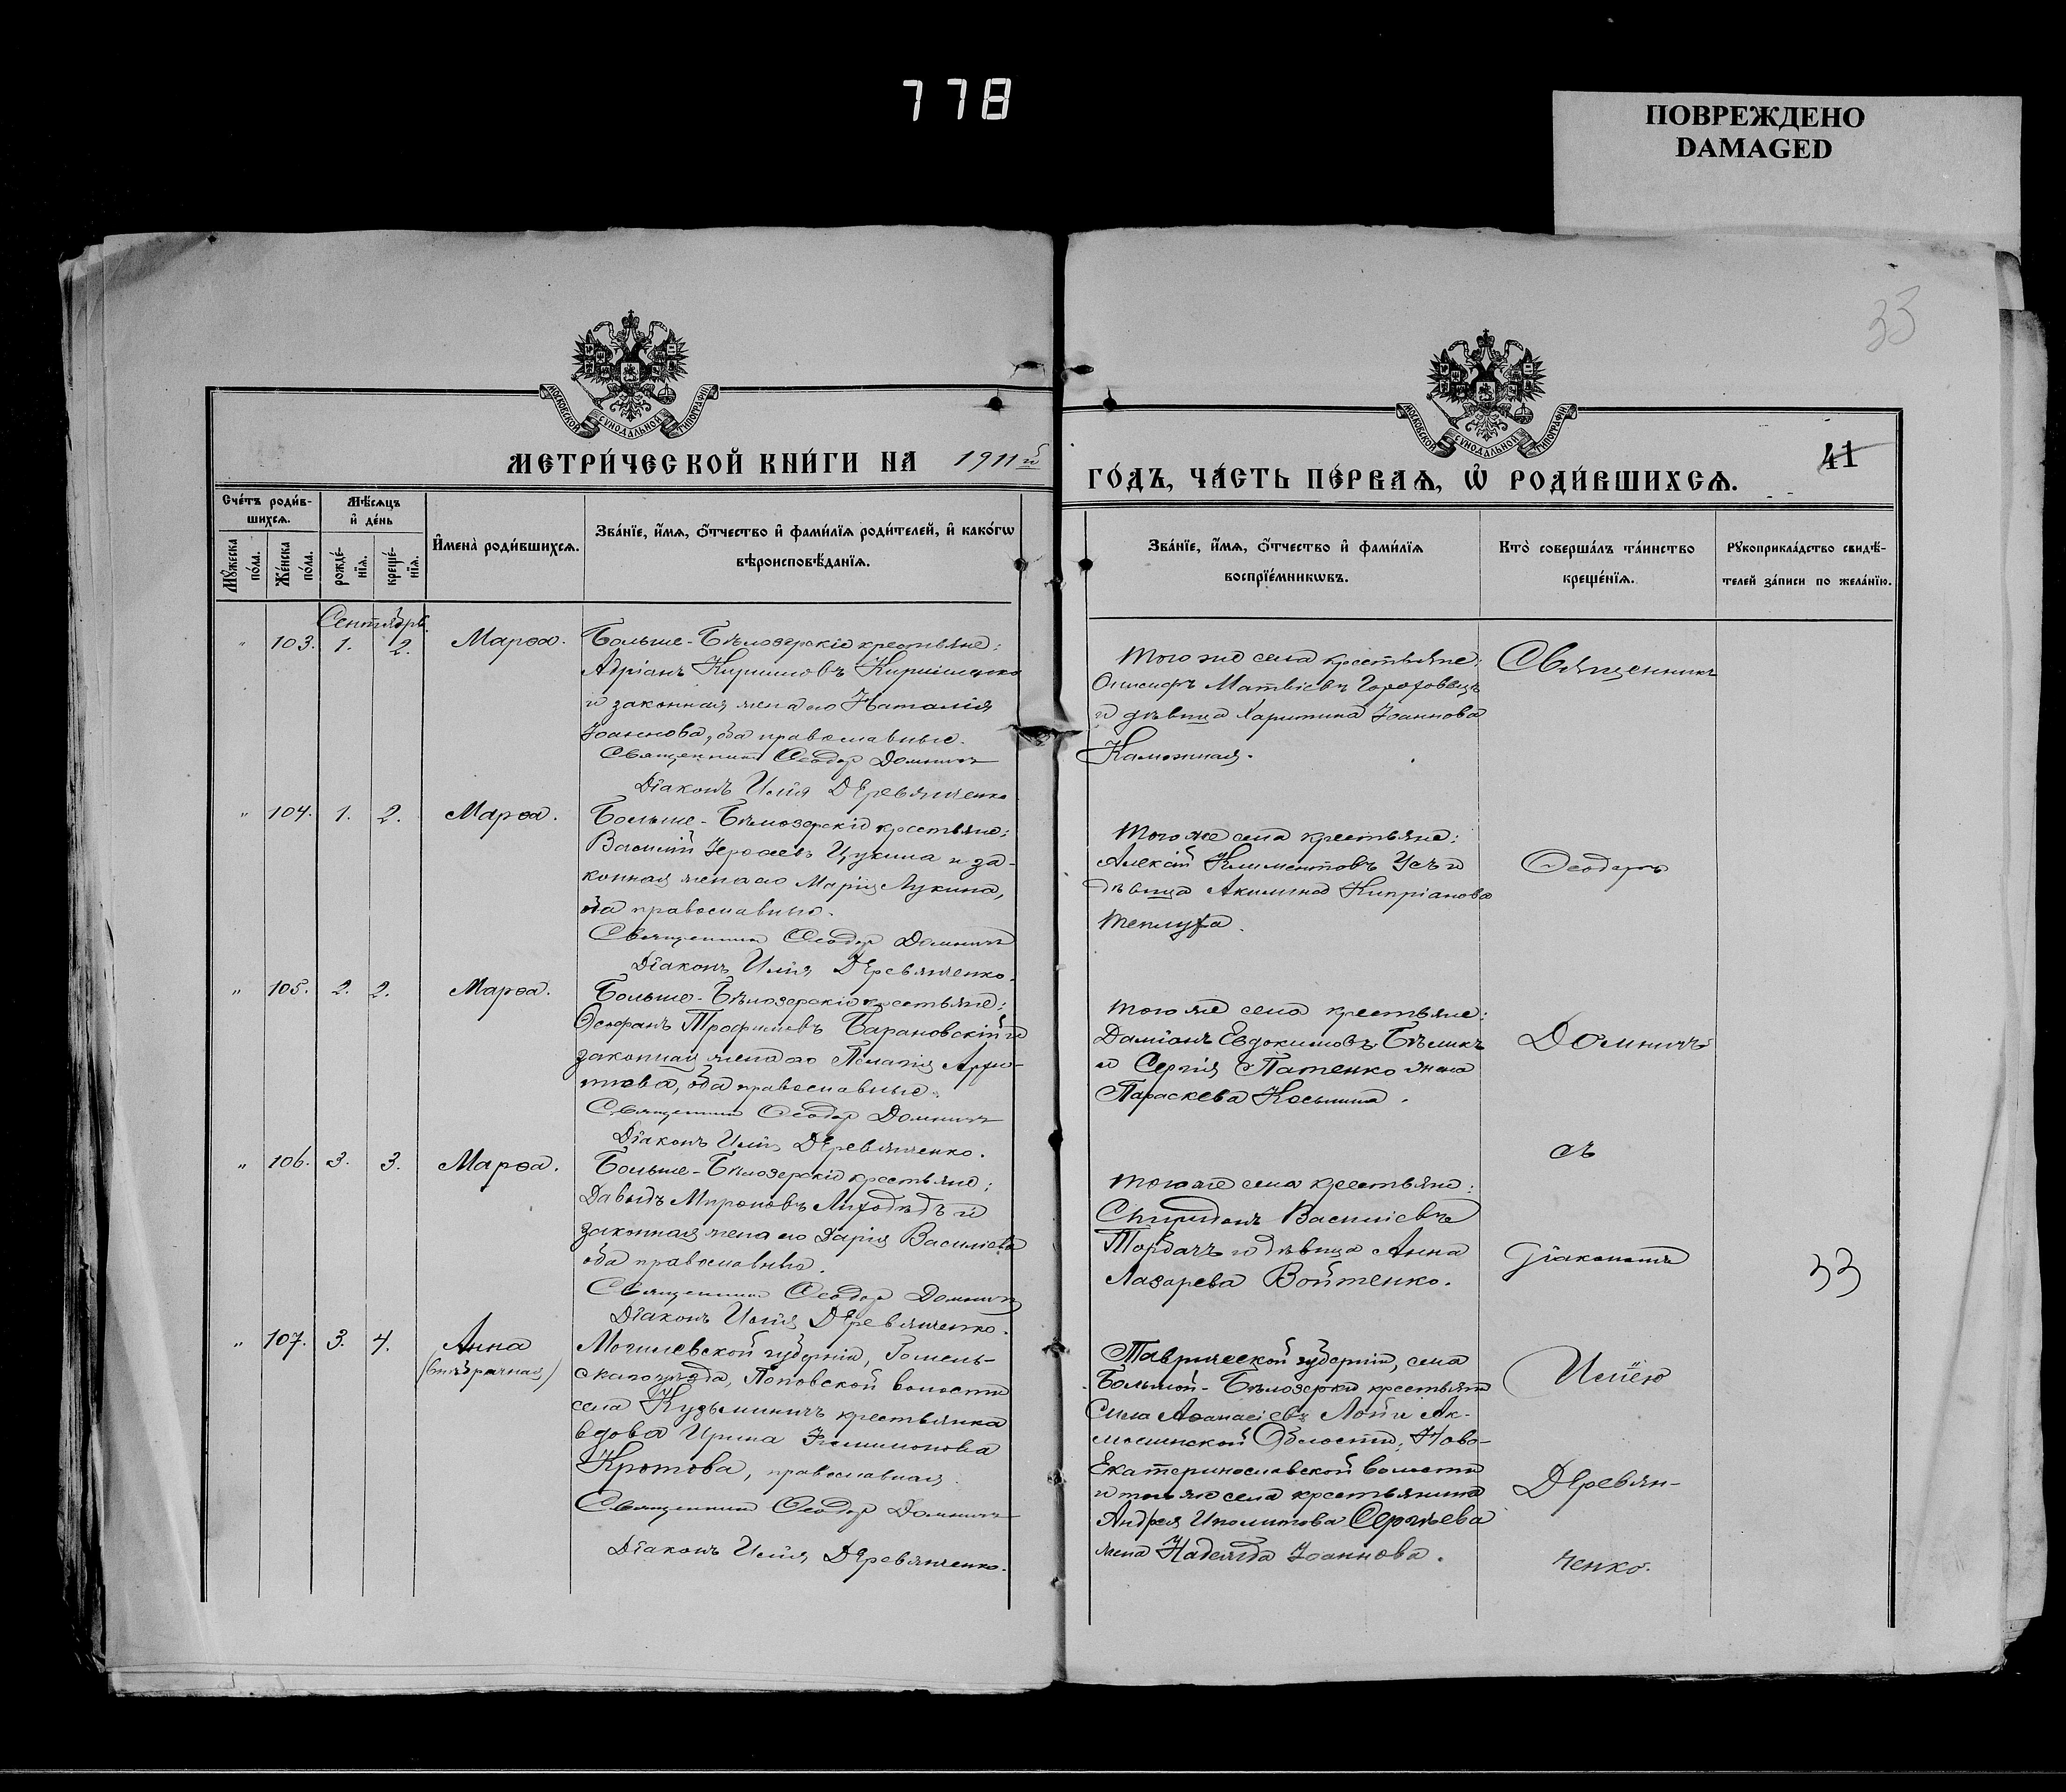 778
ПОВРЕЖДЕНО
DAMAGED
33
МОСКОВСКОЙ СѴНОДАЛЬНОЙ ТИПОГРАФІИ
МОСКОВСКОЙ СѴНОДАЛЬНОЙ ТИПОГРАФІИ
41
МЕТРИ́ЧЕСКОЙ КНИ́ГИ НА 1911й
ГО́ДЪ, ЧА́СТЬ ПЕ́РВАѦ, Ѡ҆ РОДИ́ВШИХСѦ.
Сче́тъ роди́в-
шихсѧ.
Мꙋ́жеска по́ла.
Же́нска по́ла.
Мѣ́сѧцъ
и҆ де́нь
рожде́-нїѧ.
креще́-нїѧ.
И҆мена̀ роди́вшихсѧ.
Зва́нїе, и҆́мѧ, ѻ҆́тчество и҆ фами́лїѧ роди́телей, и҆ како́гѡ
вѣроисповѣ́данїѧ.
Зва́нїе, и҆́мѧ, ѻ҆́тчество и҆ фами́лїѧ
воспрїе́мникѡвъ.
Кто̀ соверша́лъ та́инство
креще́нїѧ.
Рꙋкоприкла́дство свидѣ́-
телей за́писи по жела́нїю.
Сентябрь.
" 103. 1. 2. Марѳа.
Больше-Бѣлозерскіе крестьяне:
Адріанъ Кирилловъ
и законная жена его Наталія
Іоаннова, оба православные.
Священникъ Ѳеодоръ Домничъ
Діаконъ Илія Деревянченко
Того же села крестьяне:
Онисифъ Матвіевъ Гороховецъ
и дѣвица Харитина Іоаннова
Каложная.
Священникъ
" 104. 1. 2. Марѳа.
Больше-Бѣлозерскіе крестьяне:
Василій Іероѳеевъ Цукина и за-
конная жена его Марія Лукина,
оба православные.
Священникъ Ѳеодоръ Домничъ
Діаконъ Илія Деревянченко.
Того же села крестьяне:
Алексій Климентовъ Усъ и
дѣвица Акилина Кипріанова
Теплуха.
Ѳеодоръ
" 105. 2. 2. Марѳа.
Больше-Бѣлозерскіе крестьяне:
Ѳеофанъ Трофимовъ Барановскій и
законная жена его Пелагія
оба православные.
Священникъ Ѳеодоръ Домничъ
Діаконъ Илія Деревянченко.
Того же села крестьяне:
Даміанъ Евдокимовъ Бѣликъ
и Сергія Патенко жена
Параскева Косьмина.
Домничъ
съ
" 106. 3. 3. Марѳа.
Больше-Бѣлозерскіе крестьяне:
Давидъ Мироновъ Лиходѣдъ и
законная жена его Дарія Василіева
оба православные.
Священникъ Ѳеодоръ Домничъ
Діаконъ Илія Деревянченко.
Того же села крестьяне:
Спиридонъ Василіевъ
Торбачъ и дѣвица Анна
Лазарева Войтенко.
Діакономъ
33
" 107. 3. 4. Анна
(внѣбрачная)
Могилевской губерніи, Гомель-
скаго уѣзда, Поповской волости
села Кузьминичъ крестьянка
вдова Ирина Филимонова
Кротова, православная.
Священникъ Ѳеодоръ Домничъ
Діаконъ Илія Деревянченко.
Таврической губерніи, села
Большой-Бѣлозерки крестьянинъ
Сила Аѳанасіевъ Лой и Ак-
молинской Области, Ново-
Екатеринославской волости
и того же села крестьянина
Андрея Иполитова Сергѣева
жена Надежда Іоаннова.
Иліею
Деревян-
ченко.